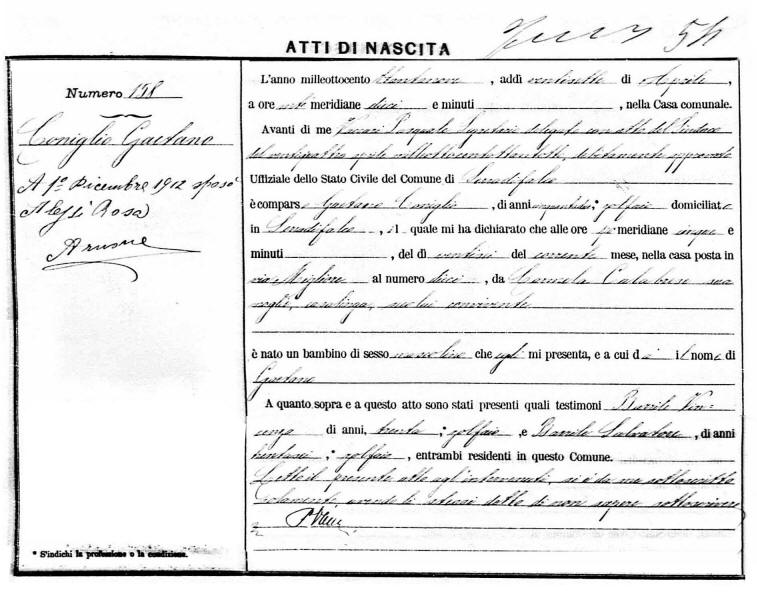 ATTI DI NASCITA
Numero 158
Coniglio Gaetano
A 1º Dicembre 1912 sposò
Alessi Rosa
L'anno milleottocento ottantanove, addì ventisette di Aprile,
a ore anti meridiane dieci e minuti, nella Casa comunale.
Avanti di me Pasquale Segretario delegato con atto del Sindaco
del ventiquattro aprile milleottocentottantotto, debitamente approvato
Uffiziale dello Stato Civile del Comune di Serradifalco
è comparso Gaetano Coniglio, di anni; zolfaio domiciliato
in Serradifalco, il quale mi ha dichiarato che alle ore meridiane cinque e
minuti, del dì del corrente mese, nella casa posta in
via Migliore al numero dieci, da Carmela Calabrese sua
moglie, casalinga, seco lui convivente
è nato un bambino di sesso mascolino che egli mi presenta, e a cui dà il nome di
Gaetano
A quanto sopra e a questo atto sono stati presenti quali testimoni Barrile Vin-
cenzo di anni, trenta; zolfaio, e Barrile Salvatore, di anni
; zolfaio, entrambi residenti in questo Comune.
Letto il presente atto agl'intervenuti, si è da me sottoscritto
solamente avendo detto di non sapere sottoscrivere
* S'indichi la professione o la condizione.